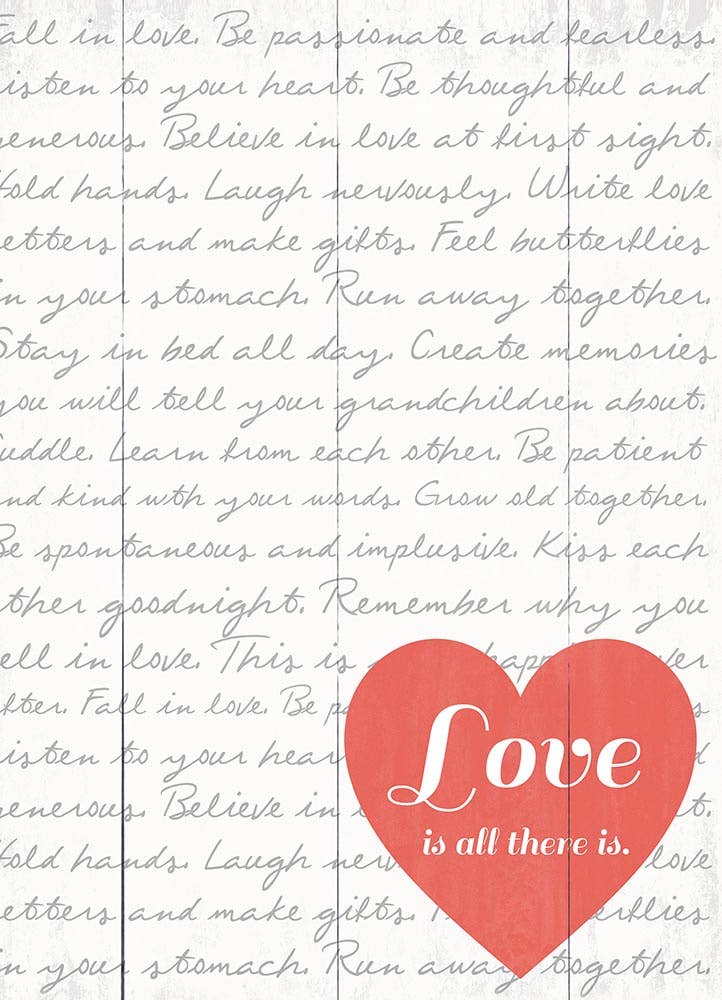 Fall in love. Be passionate and fearless.
isten to your heart. Be thoughtful and
enerous. Believe in love at first sight.
Hold hands. Laugh nervously. Write love
etters and make gifts. Feel butterflies
in your stomach. Run away together.
Stay in bed all day. Create memories
you will tell your grandchildren about.
Cuddle. Learn from each other. Be patient
and kind wth your words. Grow old together.
Be spontaneous and implusive. Kiss each
ther goodnight. Remember why you
ell in love. This is happil ver
fter. Fall in love. Be p s
isten to your hear
enerous. Believe in t.
Hold hands. Laugh nerv love
etters and make gifts. erflies
in your stomach. Run away together.
Love
is all there is.